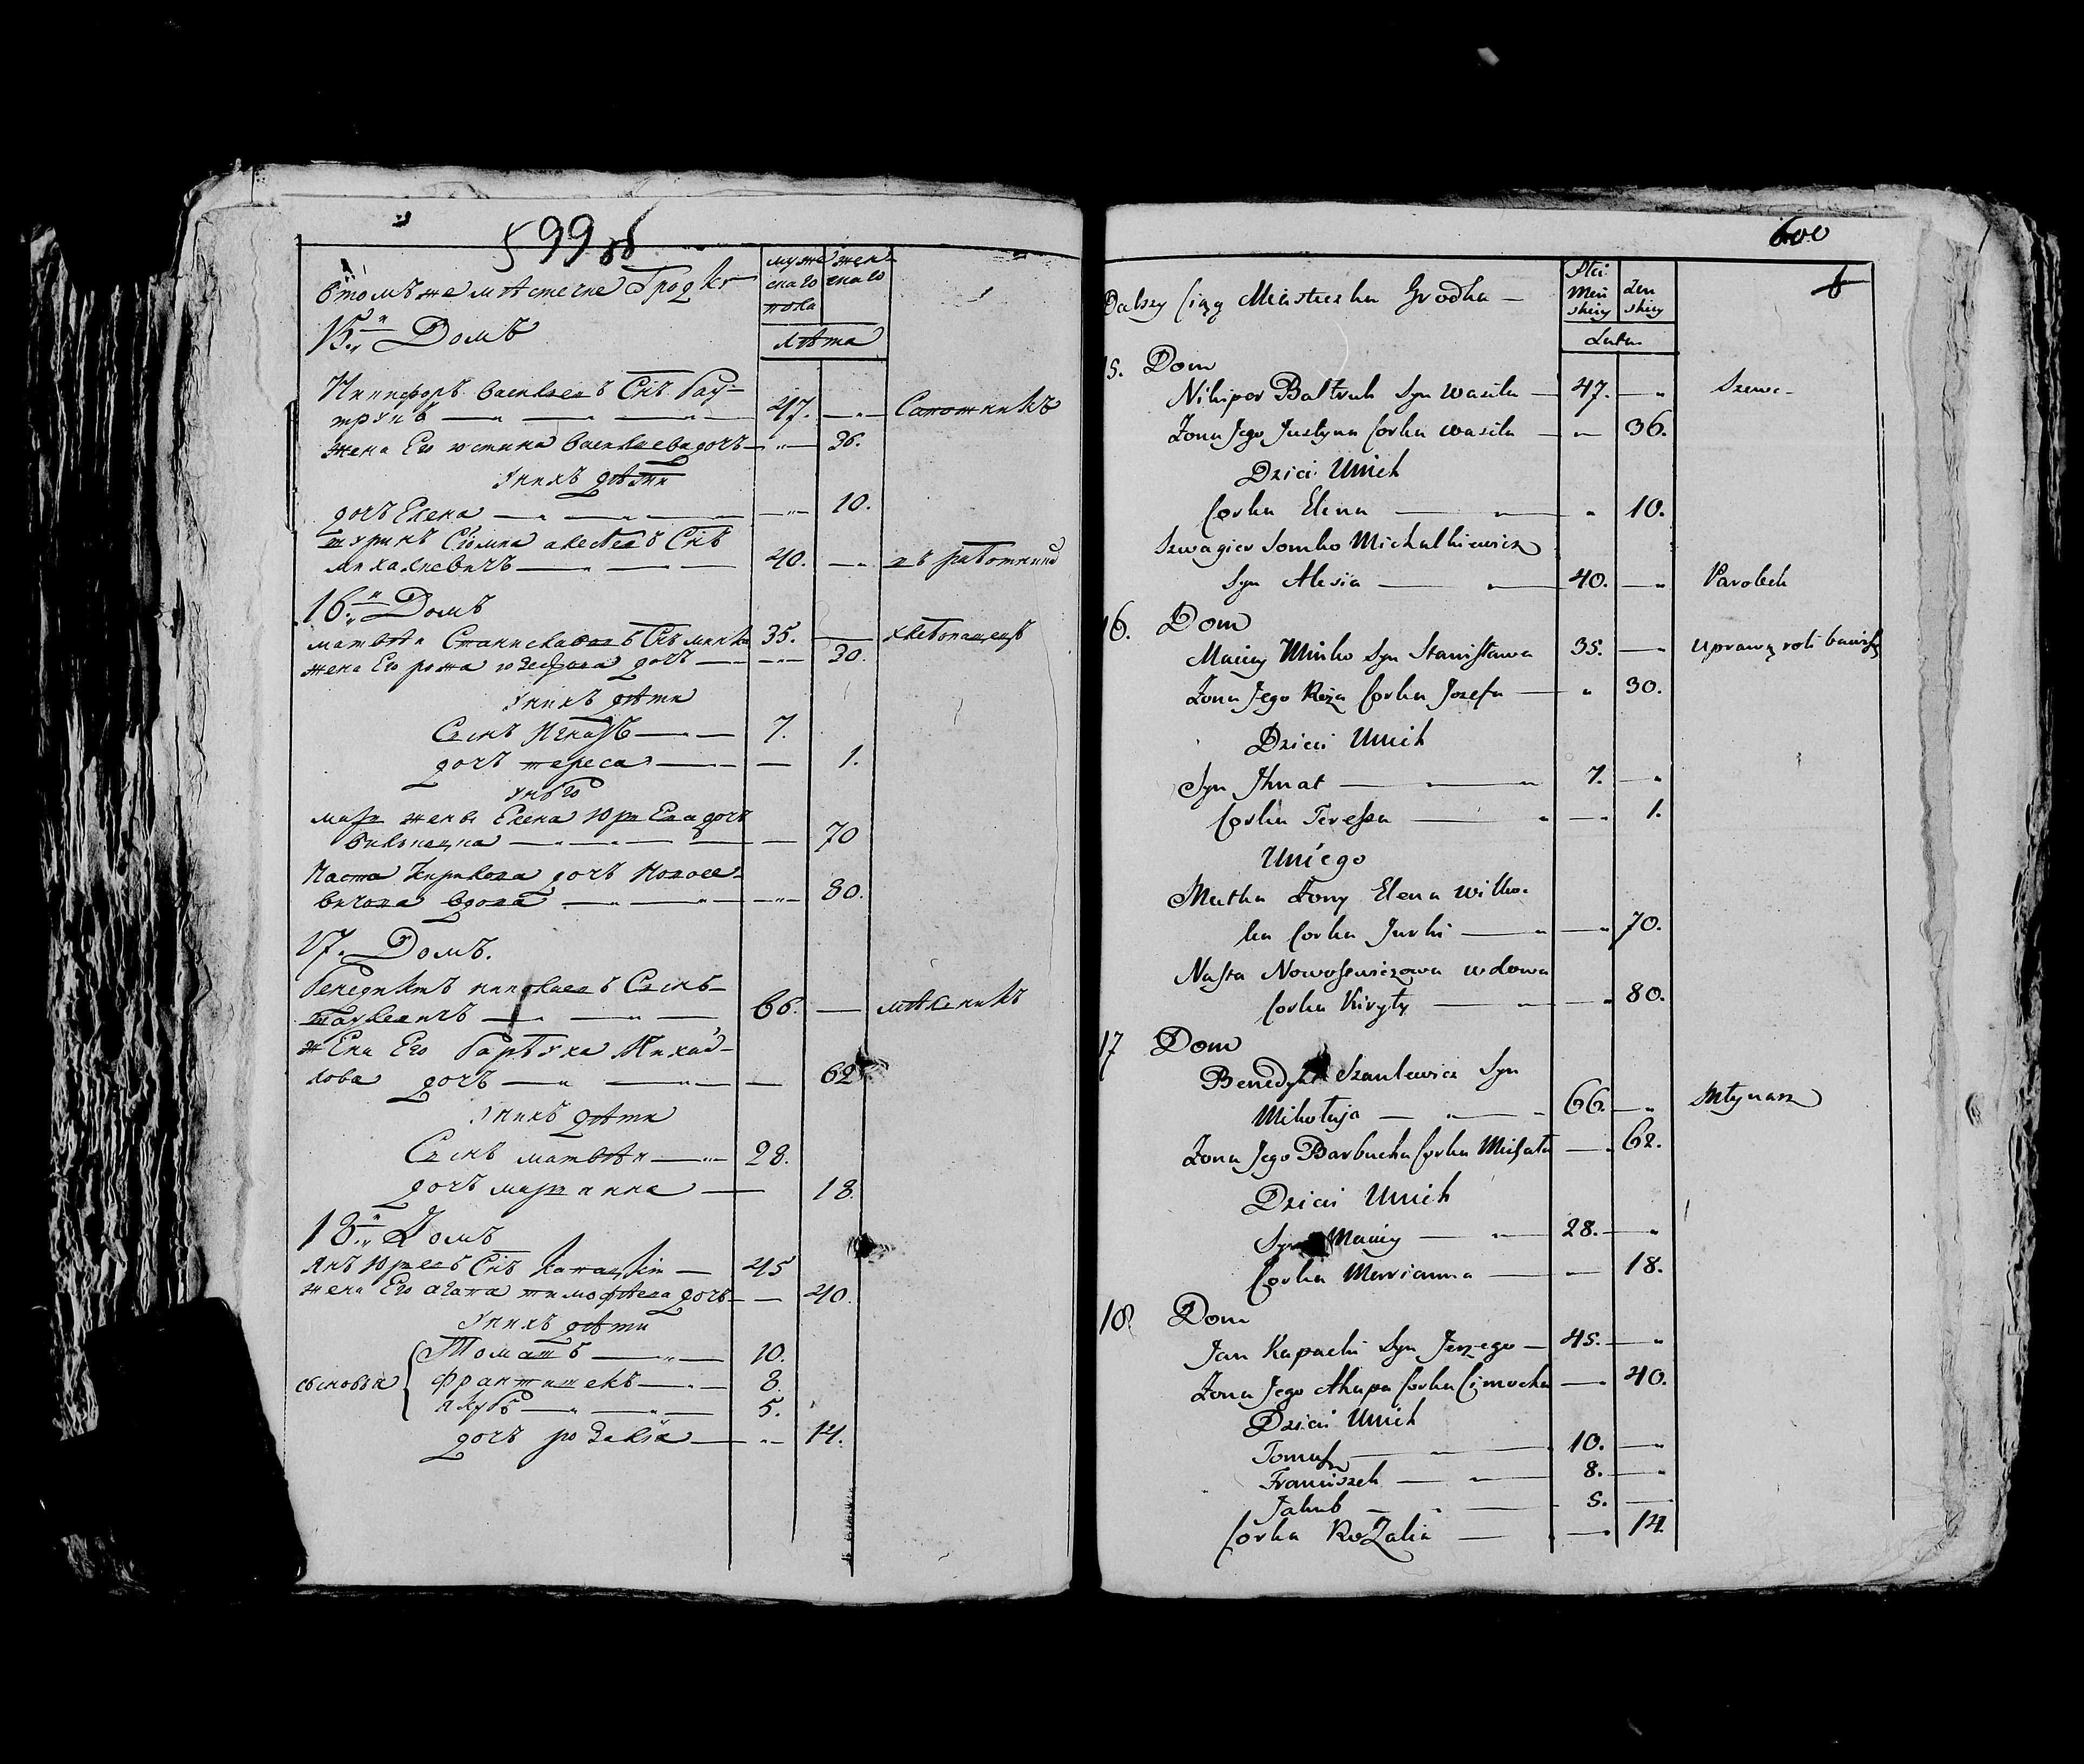 599 об
Втомъже мѣстечке Гродкѣ
муже
скаго
пола
жен
скаго
лѣта
15.й Домъ
Никифоръ Васильевъ Снъ Бал-
трукъ 47. Сапожникъ
жена Его юстина Васильева дочъ 36.
Унихъ дѣти
дочъ Елена 10.
шуринъ Сёмка алесеевъ Снъ
михалкевичъ 40. въ работникахъ
16.й Домъ
матвѣй Станиславовъ Снъ минко 35. хлебопашецъ
жена Его рожа юзефова дочъ 30.
Унихъ дѣти
Сынъ Игнатъ 7.
дочъ тереса 1.
Унего
мать жены Елена Юрьева дочъ
70
Наста Кирилова дочъ Новосе-
вичова вдова 80.
17. Домъ.
Бенедиктъ николаевъ Сынъ
Шаулевичъ 66. мѣльникъ
жЕна Его Барбуха Михай-
лова дочъ 62
Унихъ дѣти
Сынъ матвѣй 28.
дочъ марианна 18.
18.й Домъ
Янъ Юрьевъ Снъ 45
жена Его агапа тимофѣева дочъ 40.
Унихъ дѣти
сыновья Томашъ 10.
Франтишекъ 8
якубъ 5.
дочъ розалія 14.
600
Dalszy Ciąg Miasteczka Grodka
Płci
Męż
skiey
Żen
skiey
Lata
15. Dom
Nikipor Baltruk Syn Wasila 47. Szewc
Żona Jego Justyna Corka Wasila 36.
Dzieci Unich
Corka Elena 10.
Szwagier Somko Michalkiewicz
Syn Alesia 40. Parobek
16. Dom
Maciey Minko Syn Stanisława 35. Uprawą roli bawiący
Żona Jego Roża Corka Jozefa 30.
Dzieci Unich
Syn Ihnat 7.
Corka Teressa 1.
Uniego
Matka Żony Elena Wilko-
ka Corka Jurki 70.
Nasta Nowosewiczowa wdowa
Corka Kiryły 80.
17 Dom
Benedykt Szaulewicz Syn
Mikołaja 66. Młynarz
Żona Jego Barbucha Corka Michała 62.
Dzieci Unich
Syn Maciey 28.
Corka Marrianna 18.
18 Dom
Jan Kapacki Syn Jerzego 45.
Żona Jego Ahapa Corka Cimocha 40.
Dzieci Unich
Tomasz 10.
Franciszek 8.
Jakub 5.
Corka Rozalia 14